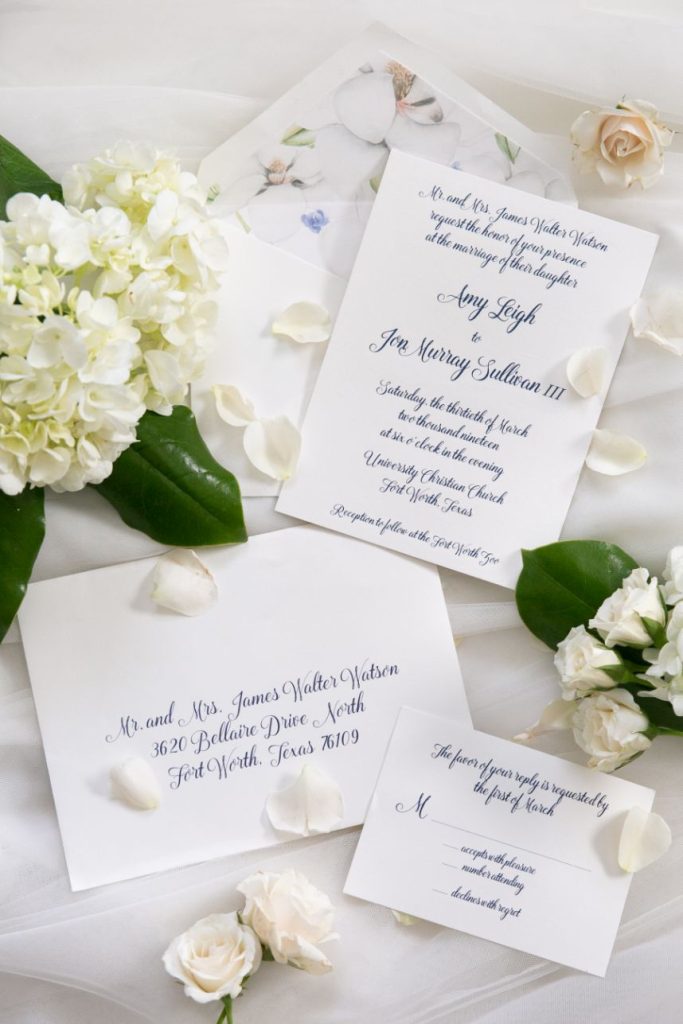 Mr. and Mrs. James Walter Watson
request the honor of your presence
at the marriage of their daughter
Amy Leigh
to
Jon Murray Sullivan III
Saturday, the thirtieth of March
two thousand nineteen
at six o'clock in the evening
University Christian Church
Fort Worth, Texas
Reception to follow at the Fort Worth Zoo
Mr. and Mrs. James Walter Watson
3620 Bellaire Drive North
Fort Worth, Texas 76109
The favor of your reply is requested by
the first of March
M
accepts with pleasure
number attending
declines with regret